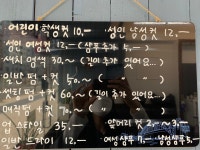 어린이 학생컷 10,- 성인 남성컷 12,-
성인 여성컷 12,- (샴푸추가 5,-)
새치 염색 30,~ (길이 추가 있어요...)
일반 펌 + 컷 50,~ (")
셋팅 펌 + 컷 60,~ (길이 추가 있어요...)
매직펌 + 컷 70,~ (")
업 스타일 35.- 앞머리 컷 2,~3,-
일반 드라이 12.- 여성샴푸 7,- 남성샴푸 5,-